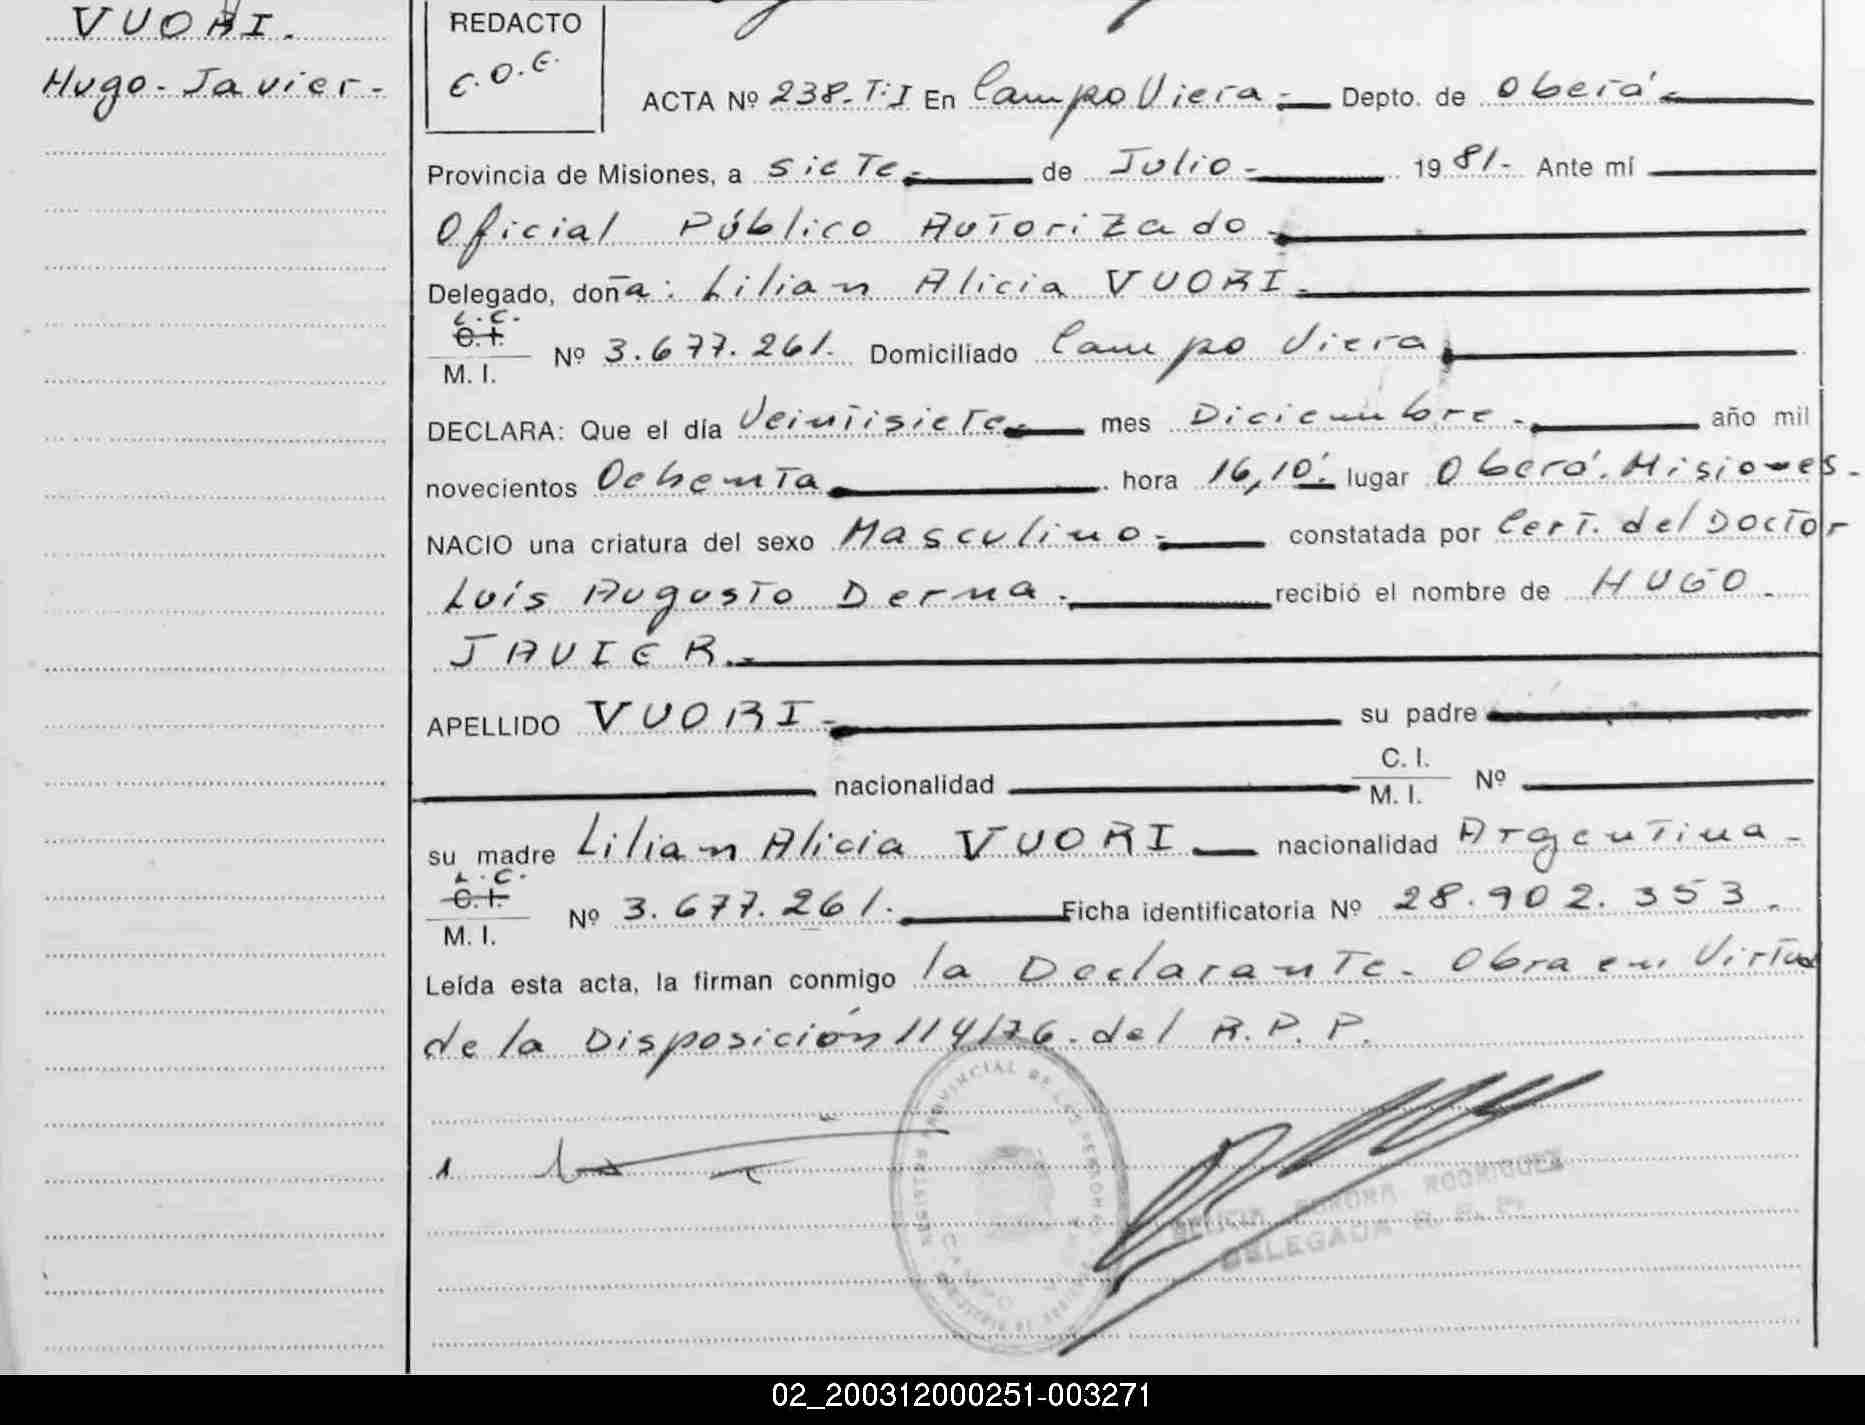 VUORI.
Hugo-Javier-
REDACTO
C.O.E.
ACTA Nº 238-T.I En Campo Viera.- Depto. de Oberá-
Provincia de Misiones, a sieTe- de Julio- 1981- Ante mí
Oficial Público AuTorizado-
Delegado, doña: Lilian Alicia VUORI.-
L.C.
C.I.
M. I.
Nº 3.677.261. Domiciliado Campo Viera
DECLARA: Que el día VeinTisieTe- mes Diciembre.- año mil
novecientos OchenTa hora 16,10'. lugar Oberá. Misiones.-
NACIO una criatura del sexo Masculino- constatada por CerT. del DocTor
Luis AugusTo Derna.- recibió el nombre de HUGO-
JAVIER.-
APELLIDO VUORI- su padre
nacionalidad
C. I.
M. I.
Nº
su madre Lilian Alicia VUORI nacionalidad ArgenTina-
L.C.
C.I.
M. I.
Nº 3.677.261. Ficha identificatoria Nº 28.902.353.-
Leída esta acta, la firman conmigo la DeclaranTe- Obra en VirTud
de la Disposición 114/76. del R.P.P.
REGISTRO PROVINCIAL DE LAS PERSONAS
CAMPO
RODRIGUEZ
DELEGADA R. P. P.
02_200312000251-003271